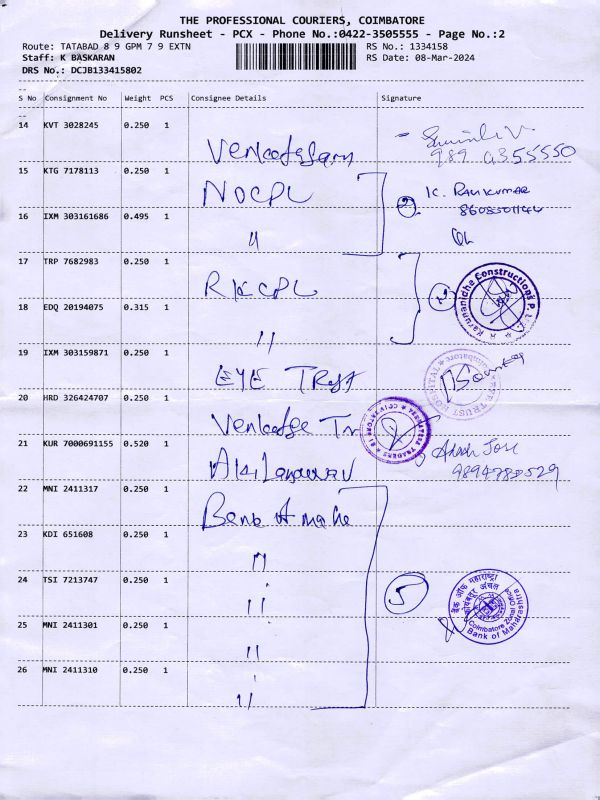 THE PROFESSIONAL COURIERS, COIMBATORE
Delivery Runsheet - PCX - Phone No.:0422-3505555 - Page No.:2
Route: TATABAD 8 9 GPM 7 9 EXTN
RS No.: 1334158
Staff: K BASKARAN
RS Date: 08-Mar-2024
DRS No.: DCJB133415802
S No Consignment No Weight PCS Consignee Details Signature
14 KVT 3028245 0.250 1
989 4355550
15 KTG 7178113 0.250 1 NOCPL
K. RAVIKUMAR
16 IXM 303161686 0.495 1 "
2
17 TRP 7682983 0.250 1 RKCPL
Karunanidhe Constructions P.
18 EDQ 20194075 0.315 1 "
2
19 IXM 303159871 0.250 1 EYE Trust
EYE TRUST HOSPITAL Coimbatore
20 HRD 326424707 0.250 1
TRADERS COIMBATORE
21 KUR 7000691155 0.520 1
9894788529
22 MNI 2411317 0.250 1 Bank of mahe
23 KDI 651608 0.250 1 "
24 TSI 7213747 0.250 1 "
5
बैंक ऑफ महाराष्ट्र
कोयंबटूर अंचल
Coimbatore Zonal Office
Bank of Maharashtra
25 MNI 2411301 0.250 1 "
26 MNI 2411310 0.250 1 "